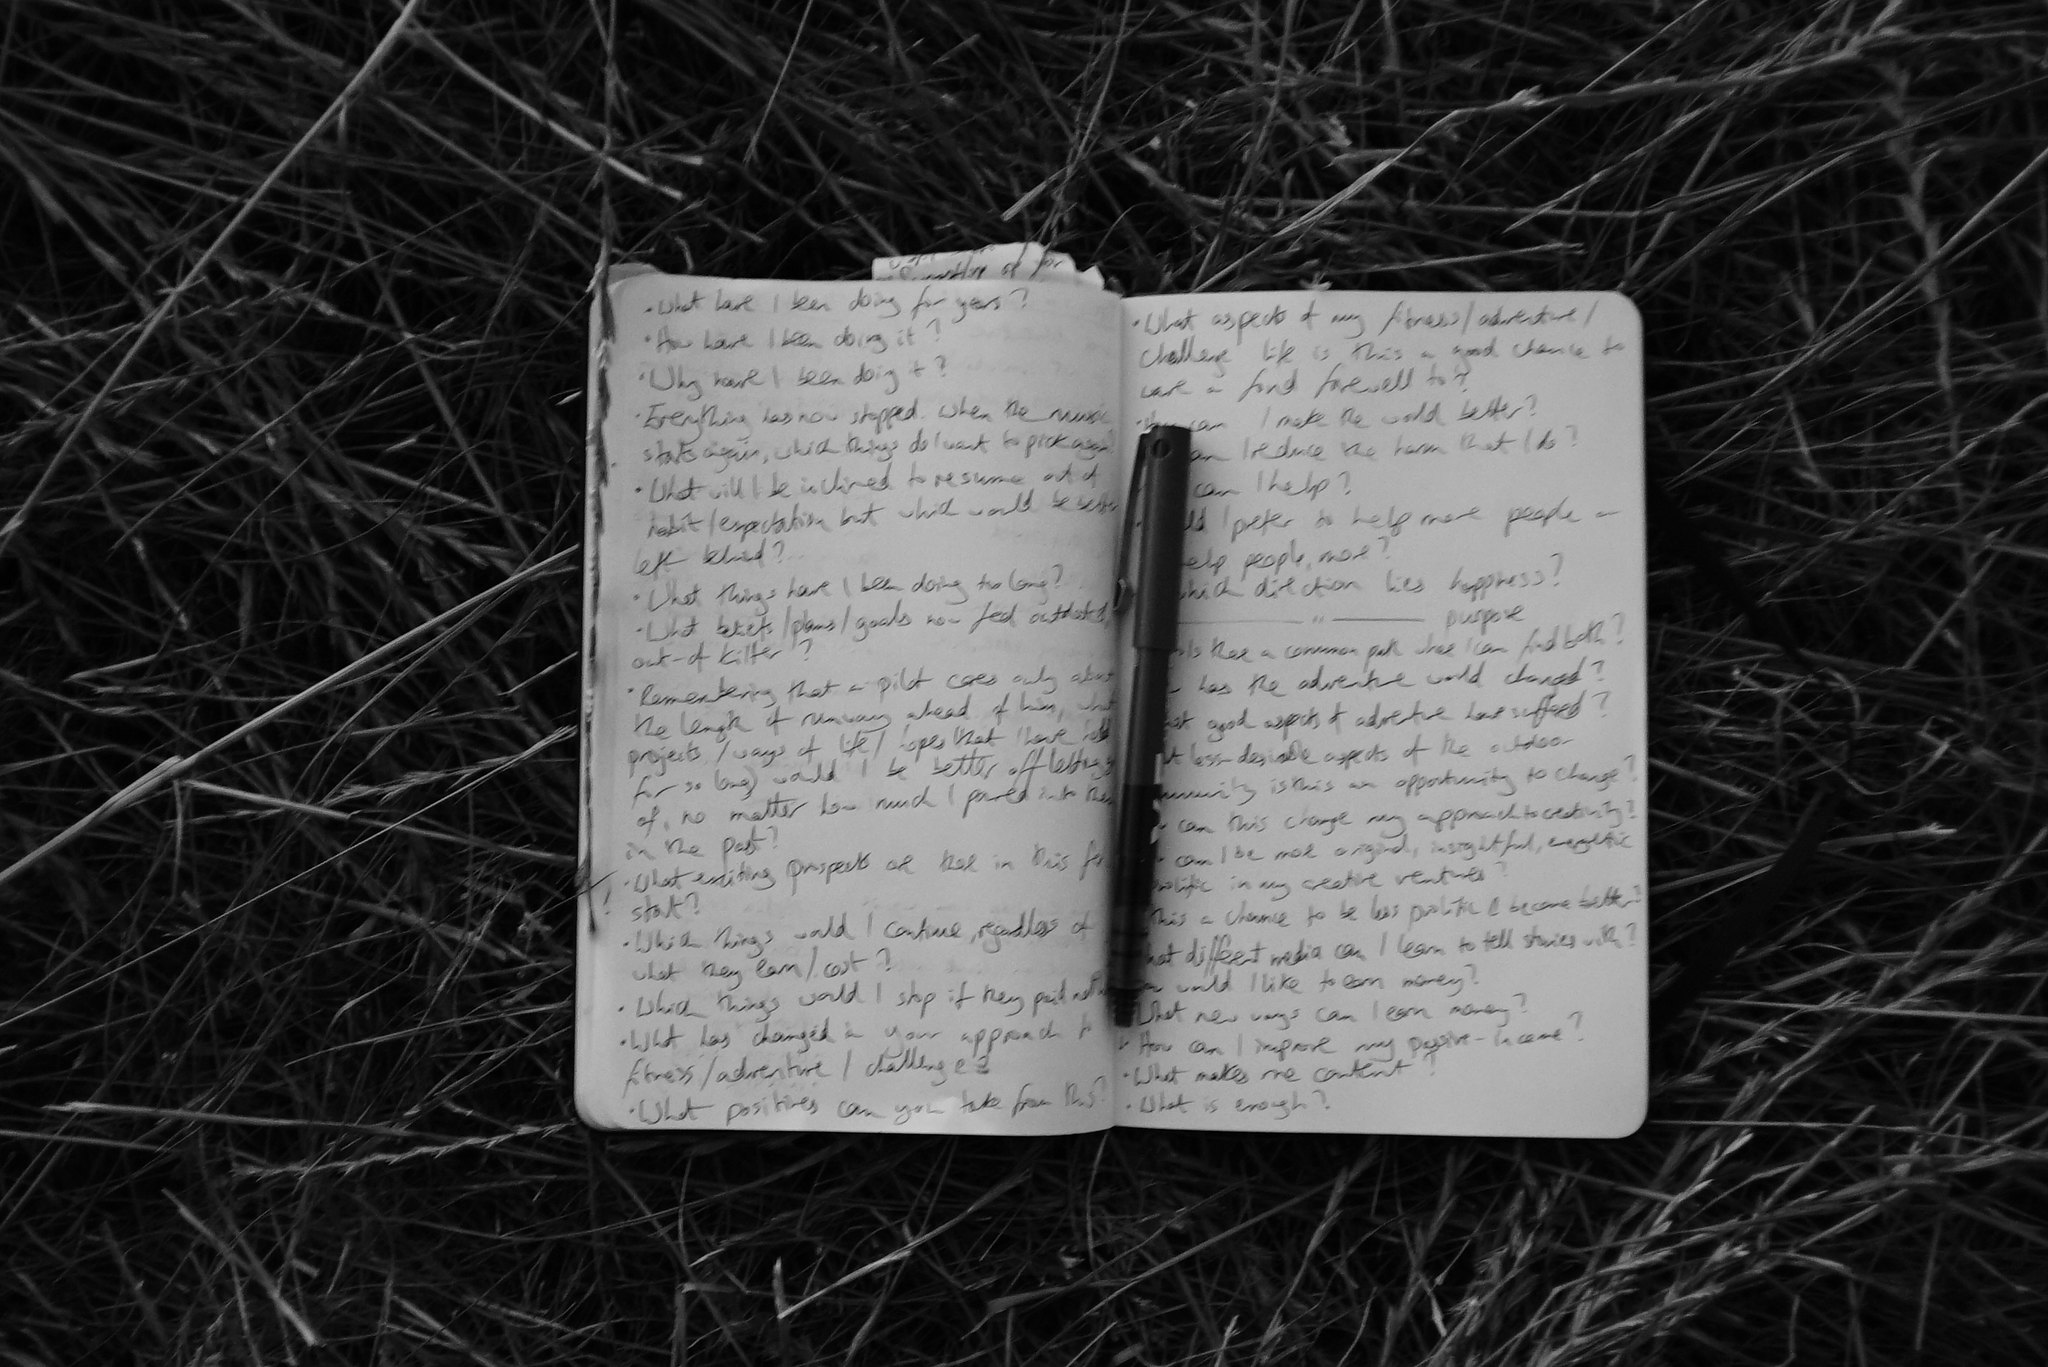 for
· What have I been doing for years?
· How have I been doing it?
· Why have I been doing it?
· Everything has now stopped. When the music
starts again, which things do I want to pick again?
· What will I be inclined to resume out of
habit/expectation but which would be better
left behind?
· What things have I been doing too long?
· What beliefs/plans/goals now feel outdated,
out-of kilter?
· Remembering that a pilot cares only about
the length of runway ahead of him, what
projects/ways of life/hopes that I have held
for so long) would I be better off letting go
of, no matter how much I poured into them
in the past?
· What exciting prospects are there in this
start?
· Which things would I continue, regardless of
what they earn/cost?
· Which things would I stop if they paid
· What has changed in your approach to
fitness/adventure/challenge?
· What positives can you take from this?
· What aspects of my fitness/adventure/
challenge life is this a good chance to
wave a fond farewell to?
can I make the world better?
can I reduce the harm that I do?
can I help?
I prefer to help more people or
help people, more?
which direction lies happiness?
—— " —— purpose
Is there a common path where I can find both?
has the adventure world changed?
good aspects of adventure have suffered?
less-desirable aspects of the outdoor
is this an opportunity to change?
can this change my approach to creativity?
can I be more original, insightful, energetic
prolific in my creative ventures?
this a chance to be less prolific & become better?
What different media can I learn to tell stories with?
would I like to earn money?
What new ways can I earn money?
· How can I improve my passive-income?
· What makes me content?
· What is enough?